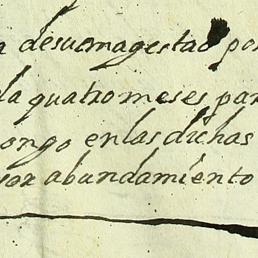 a desumagestad por
da quatromeses par
ongo enlas dichas
yor abundamiento